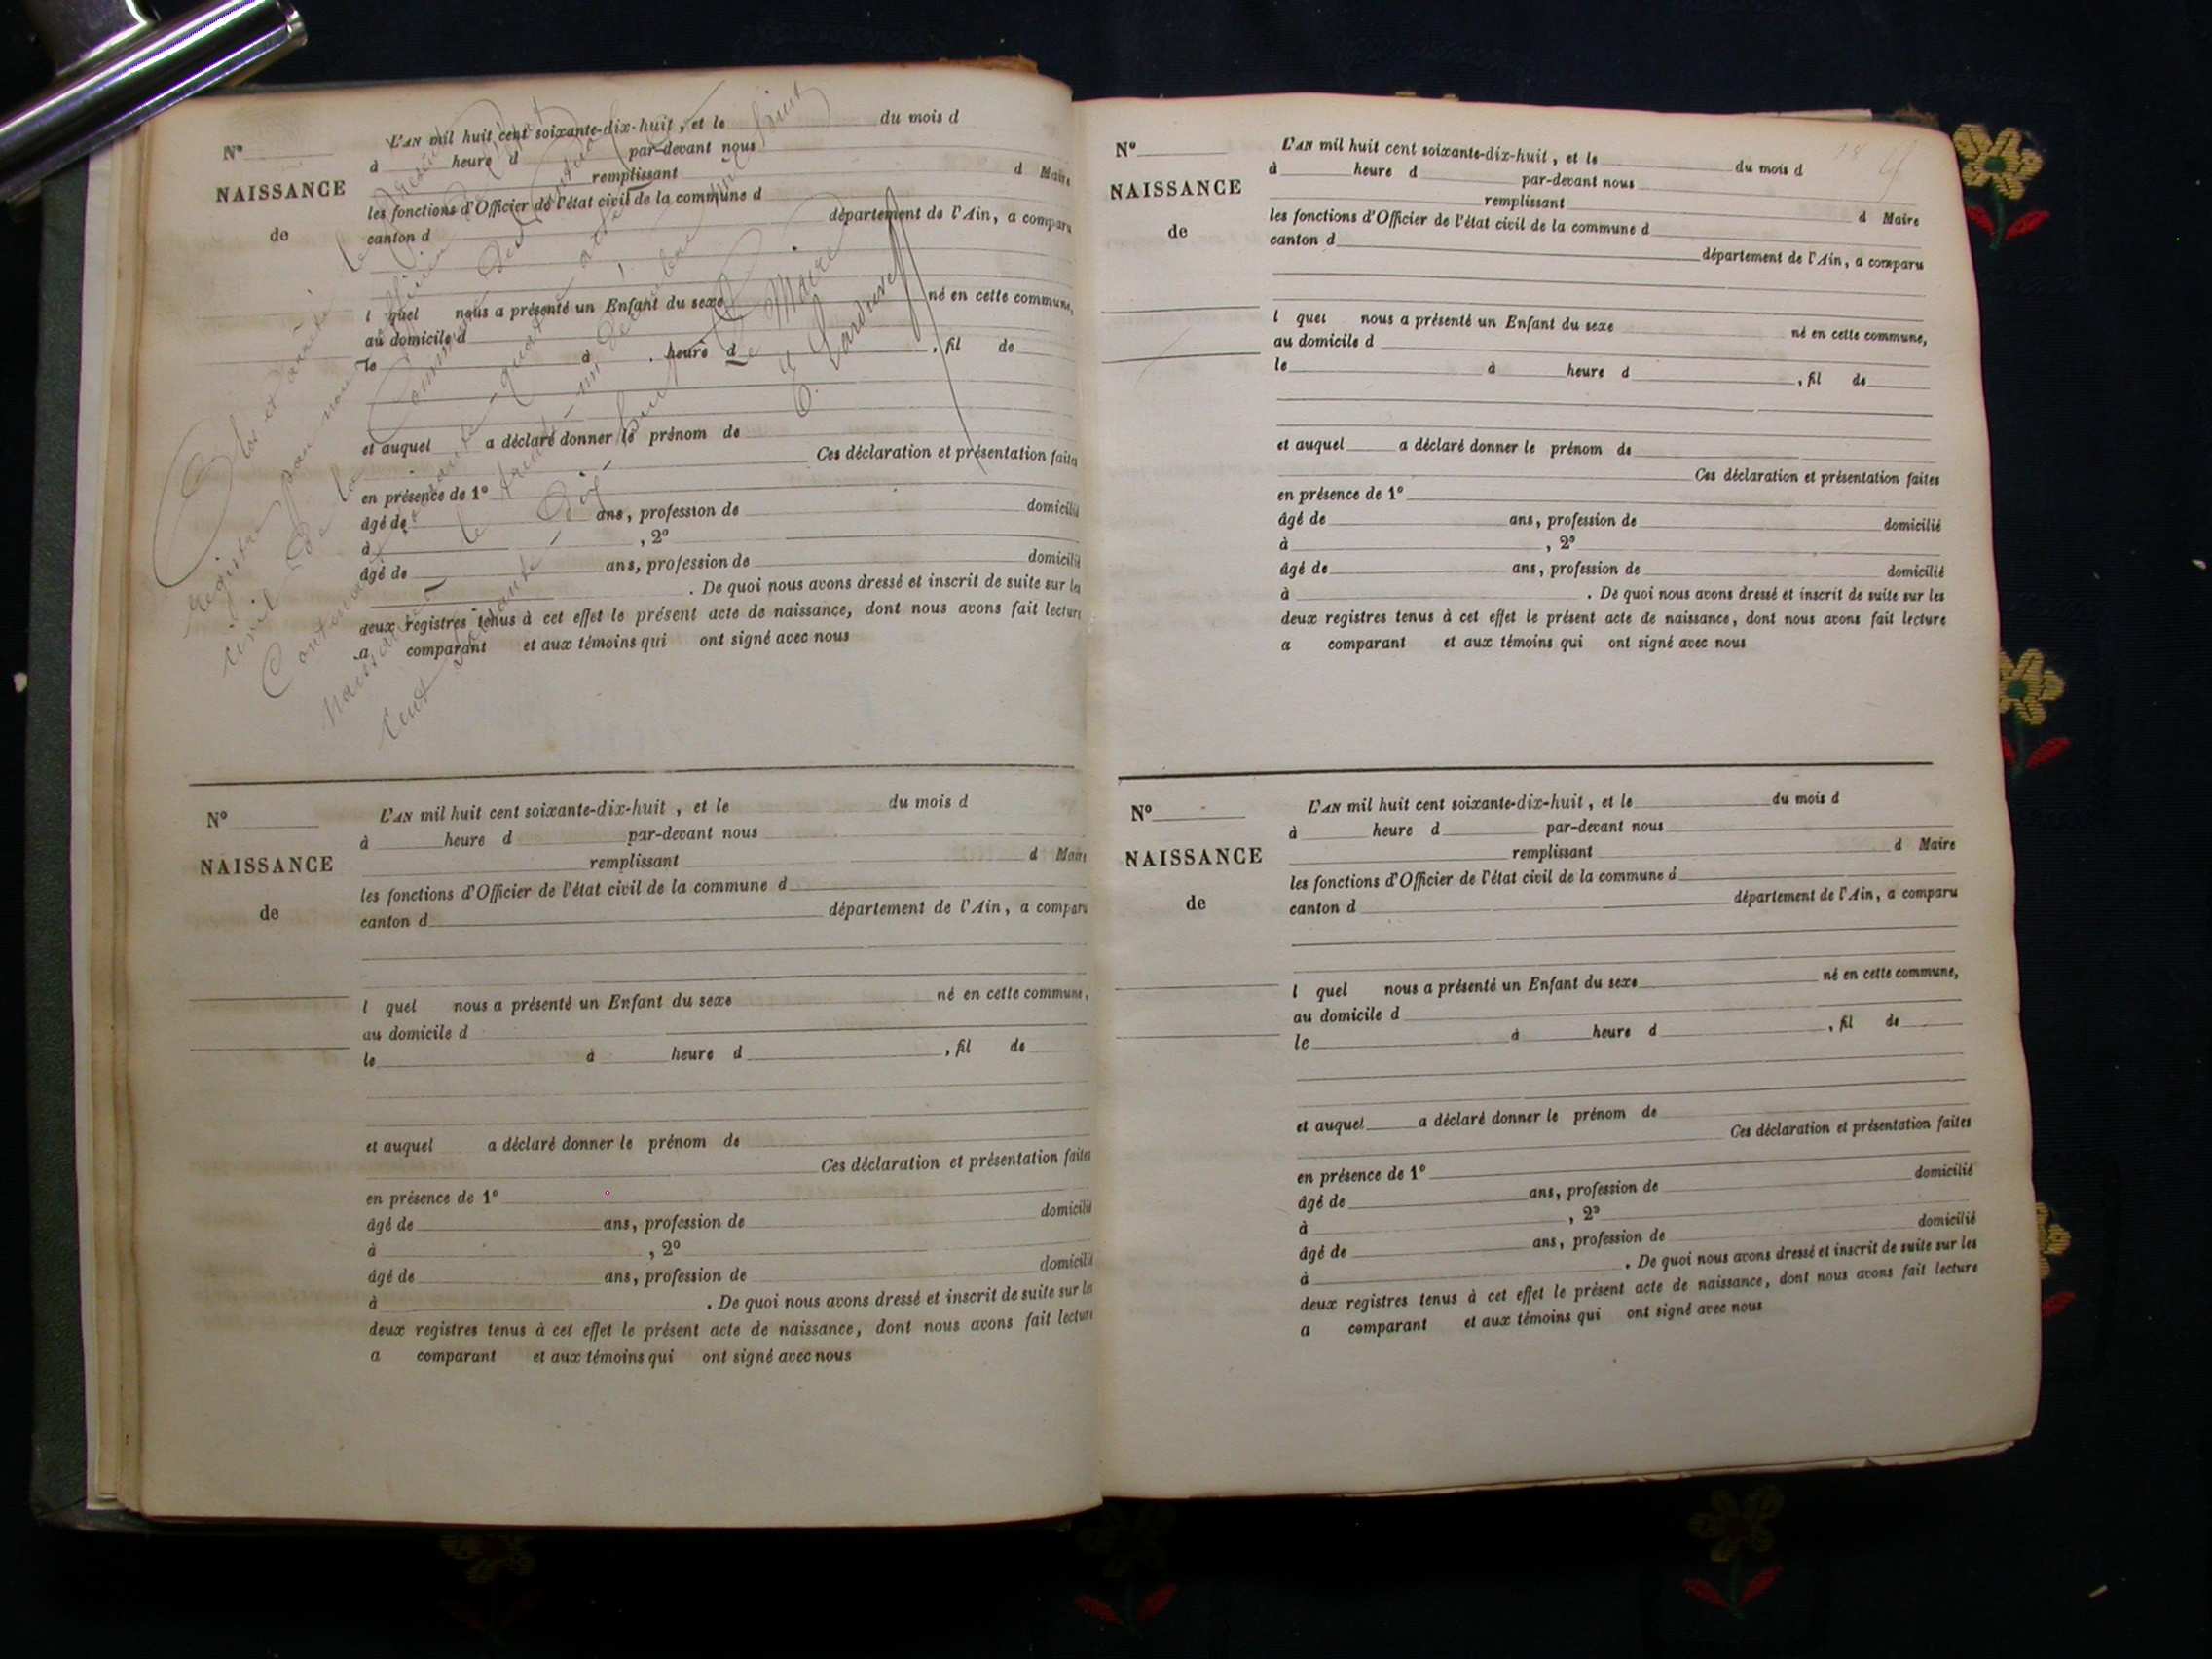 Clos et arrêté le présent
registre par nous officier de l'état
civil de la Commune de
Contenant quarante quatre actes de
Naissances le trente un décembre mil huit
Cent soixante dix huit
Le Maire
N°
NAISSANCE
de
L'AN mil huit cent soixante-dix-huit, et le du mois d
à heure d par-devant nous
remplissant d Maire
les fonctions d'Officier de l'état civil de la commune d
canton d département de l'Ain, a comparu
l quel nous a présenté un Enfant du sexe né en cette commune,
au domicile d
le à heure d , fil de
et auquel a déclaré donner le prénom de
Ces déclaration et présentation faites
en présence de 1°
âgé de ans, profession de domicilié
à , 2°
âgé de ans, profession de domicilié
. De quoi nous avons dressé et inscrit de suite sur les
deux registres tenus à cet effet le présent acte de naissance, dont nous avons fait lecture
a comparant et aux témoins qui ont signé avec nous
N°
NAISSANCE
de
L'AN mil huit cent soixante-dix-huit, et le du mois d
à heure d par-devant nous
remplissant d Maire
les fonctions d'Officier de l'état civil de la commune d
canton d département de l'Ain, a comparu
l quel nous a présenté un Enfant du sexe né en cette commune,
au domicile d
le à heure d , fil de
et auquel a déclaré donner le prénom de
Ces déclaration et présentation faites
en présence de 1°
âgé de ans, profession de domicilié
à , 2°
âgé de ans, profession de domicilié
à . De quoi nous avons dressé et inscrit de suite sur les
deux registres tenus à cet effet le présent acte de naissance, dont nous avons fait lecture
a comparant et aux témoins qui ont signé avec nous
N°
NAISSANCE
de
L'AN mil huit cent soixante-dix-huit, et le du mois d
à heure d par-devant nous
remplissant d Maire
les fonctions d'Officier de l'état civil de la commune d
canton d département de l'Ain, a comparu
l quel nous a présenté un Enfant du sexe né en cette commune,
au domicile d
le à heure d , fil de
et auquel a déclaré donner le prénom de
Ces déclaration et présentation faites
en présence de 1°
âgé de ans, profession de domicilié
à , 2°
âgé de ans, profession de domicilié
à . De quoi nous avons dressé et inscrit de suite sur les
deux registres tenus à cet effet le présent acte de naissance, dont nous avons fait lecture
a comparant et aux témoins qui ont signé avec nous
N°
NAISSANCE
de
L'AN mil huit cent soixante-dix-huit, et le du mois d
à heure d par-devant nous
remplissant d Maire
les fonctions d'Officier de l'état civil de la commune d
canton d département de l'Ain, a comparu
l quel nous a présenté un Enfant du sexe né en cette commune,
au domicile d
le à heure d , fil de
et auquel a déclaré donner le prénom de
Ces déclaration et présentation faites
en présence de 1°
âgé de ans, profession de domicilié
à , 2°
âgé de ans, profession de domicilié
à . De quoi nous avons dressé et inscrit de suite sur les
deux registres tenus à cet effet le présent acte de naissance, dont nous avons fait lecture
a comparant et aux témoins qui ont signé avec nous